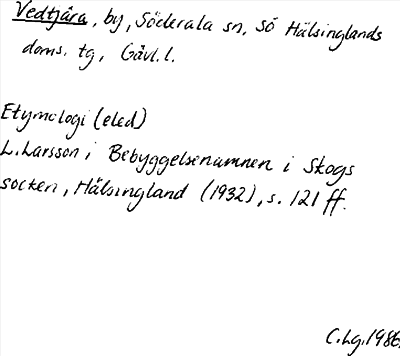 Vedtjära, by, Söderala sn, Sö Hälsinglands
doms. tg, Gävl. l.
Etymologi (eled)
L. Larsson i Bebyggelsenamnen i Skogs
socken, Hälsingland (1932), s. 121 ff.
C. Lg. 1986.